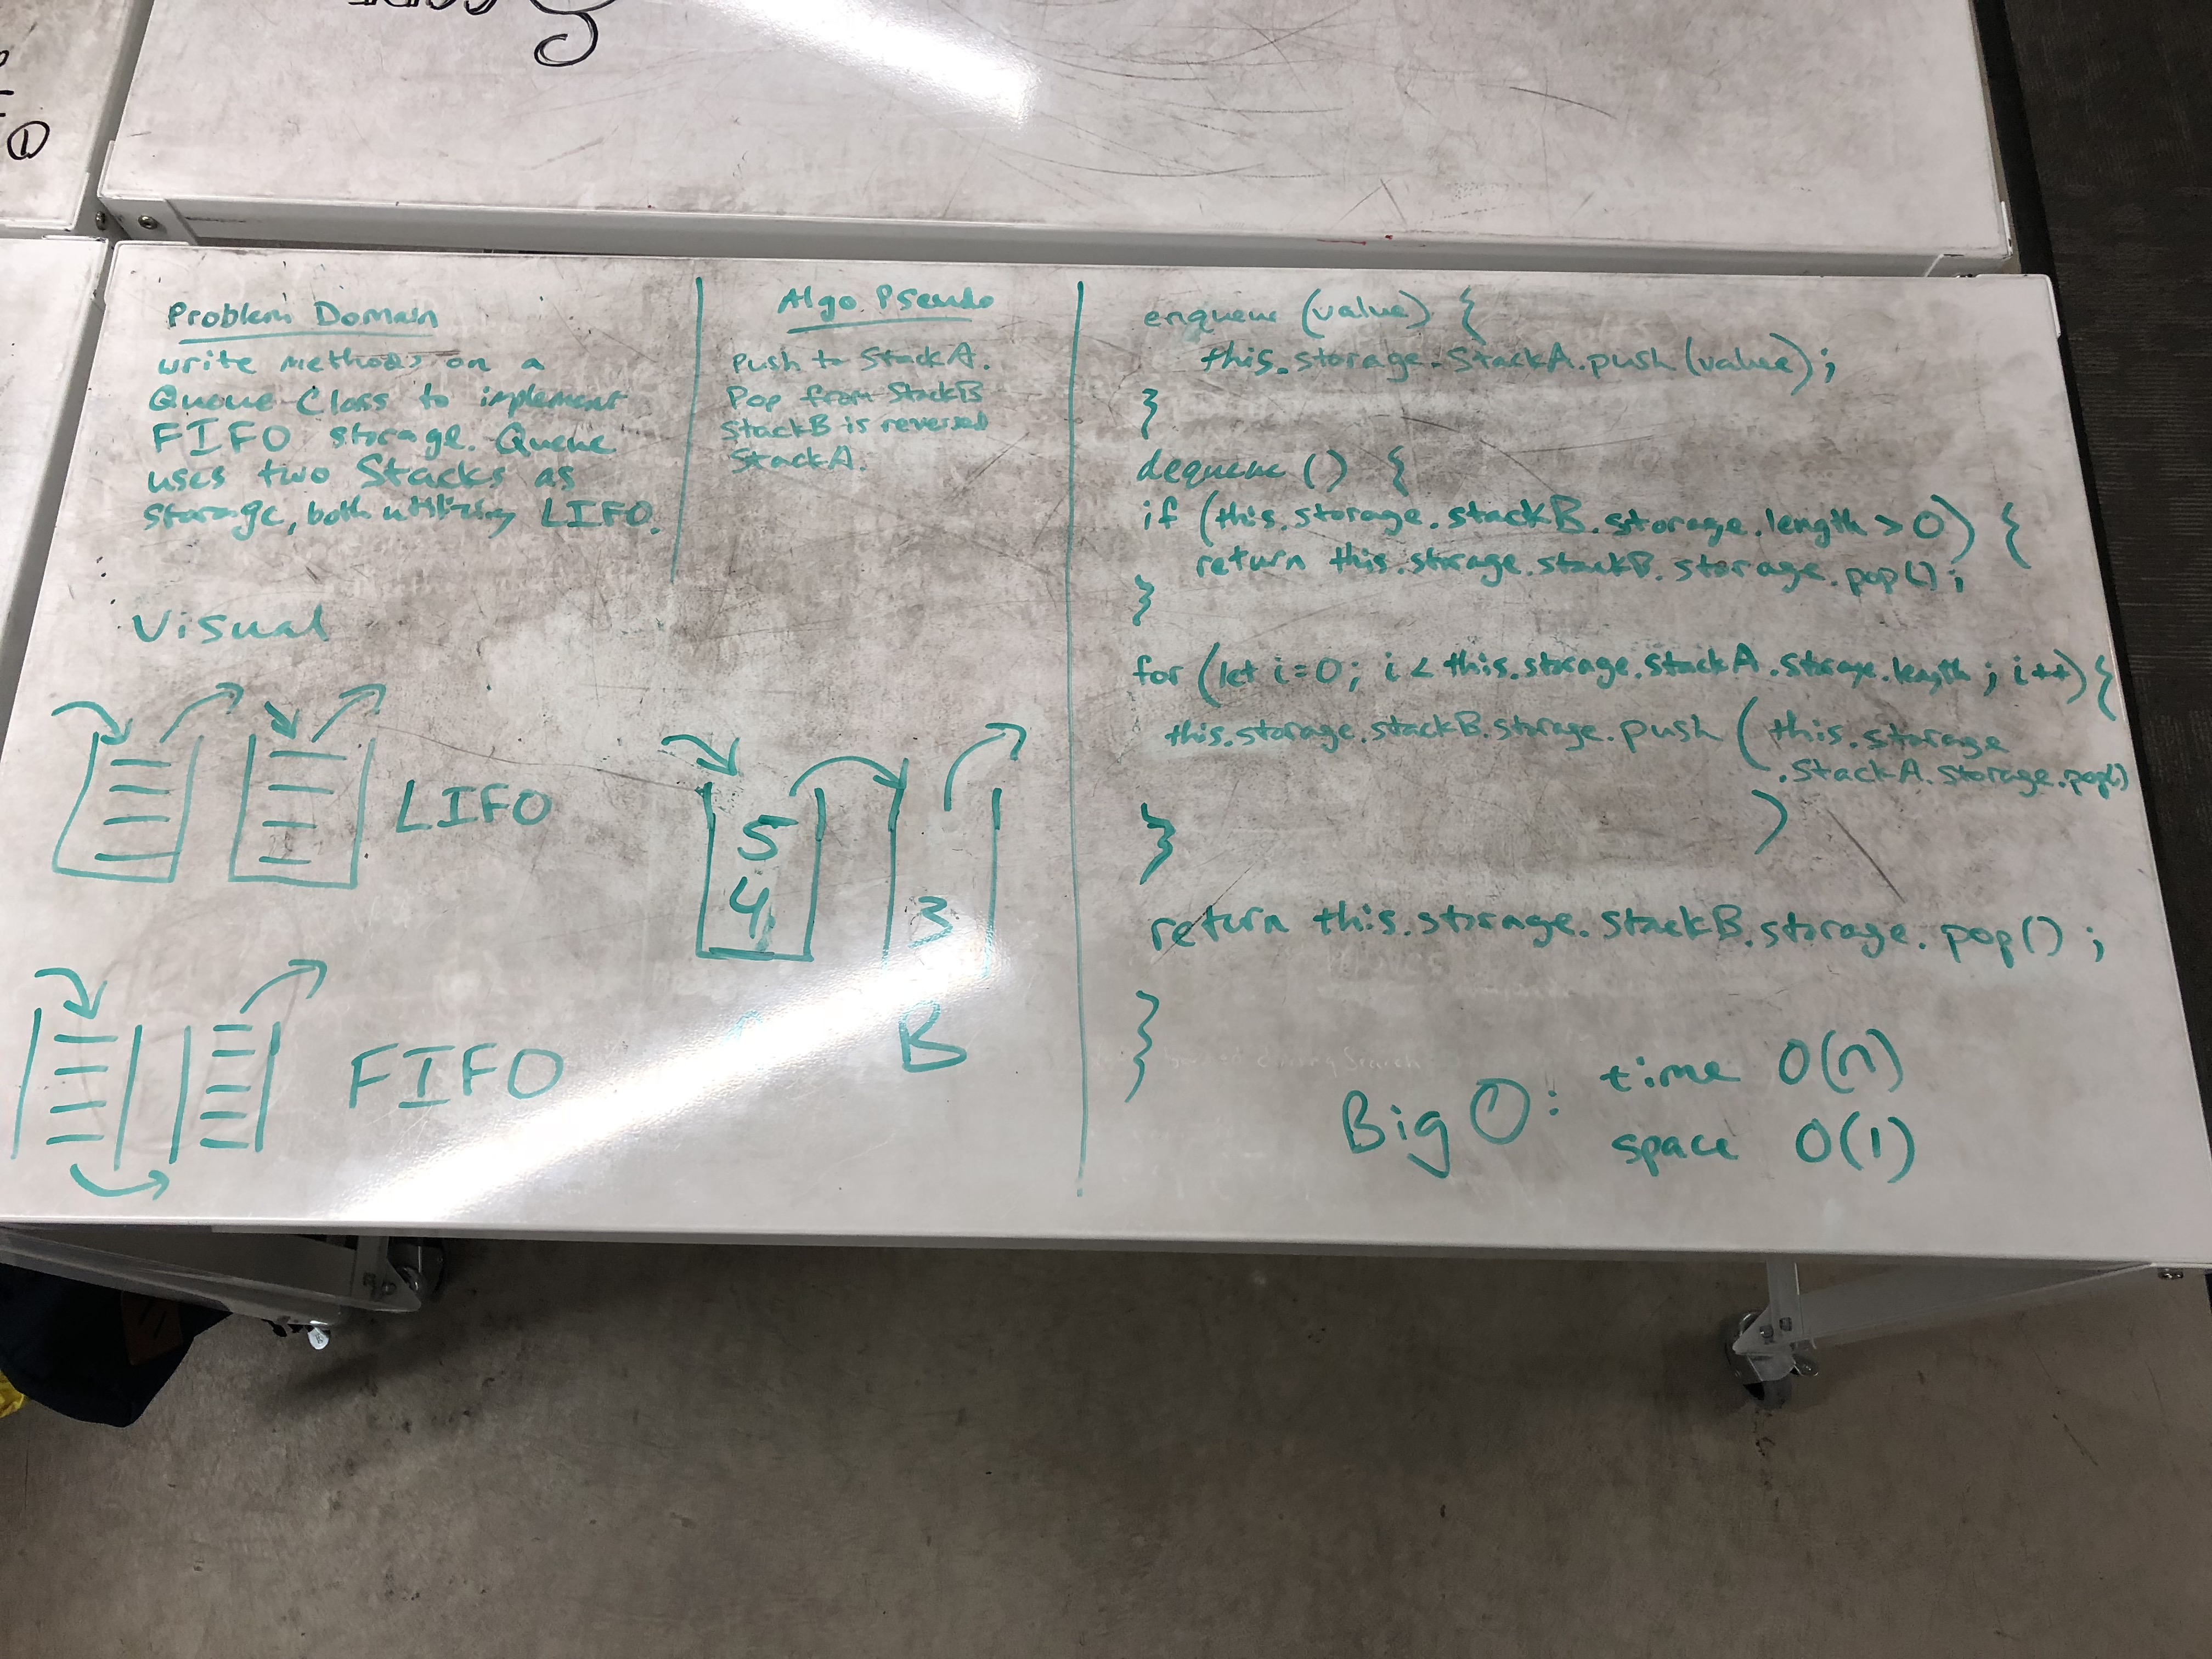 ①
Problem Domain
write methods on a
Queue Class to implement
FIFO storage. Queue
uses two Stacks as
storage, both utilizing LIFO.
Visual
LIFO
FIFO
Algo Pseudo
Push to StackA.
Pop from StackB
StackB is reversed
StackA.
5
4
3
B
enqueue (value) {
this.storage.StackA.push(value);
}
dequeue () {
if (this.storage.stackB.storage.length > 0) {
return this.storage.stackB.storage.pop();
}
for (let i=0; i < this.storage.stackA.storage.length; i++) {
this.storage.stackB.storage.push (this.storage
.stackA.storage.pop()
)
}
return this.storage.stackB.storage.pop();
}
Big O: time O(n)
space O(1)